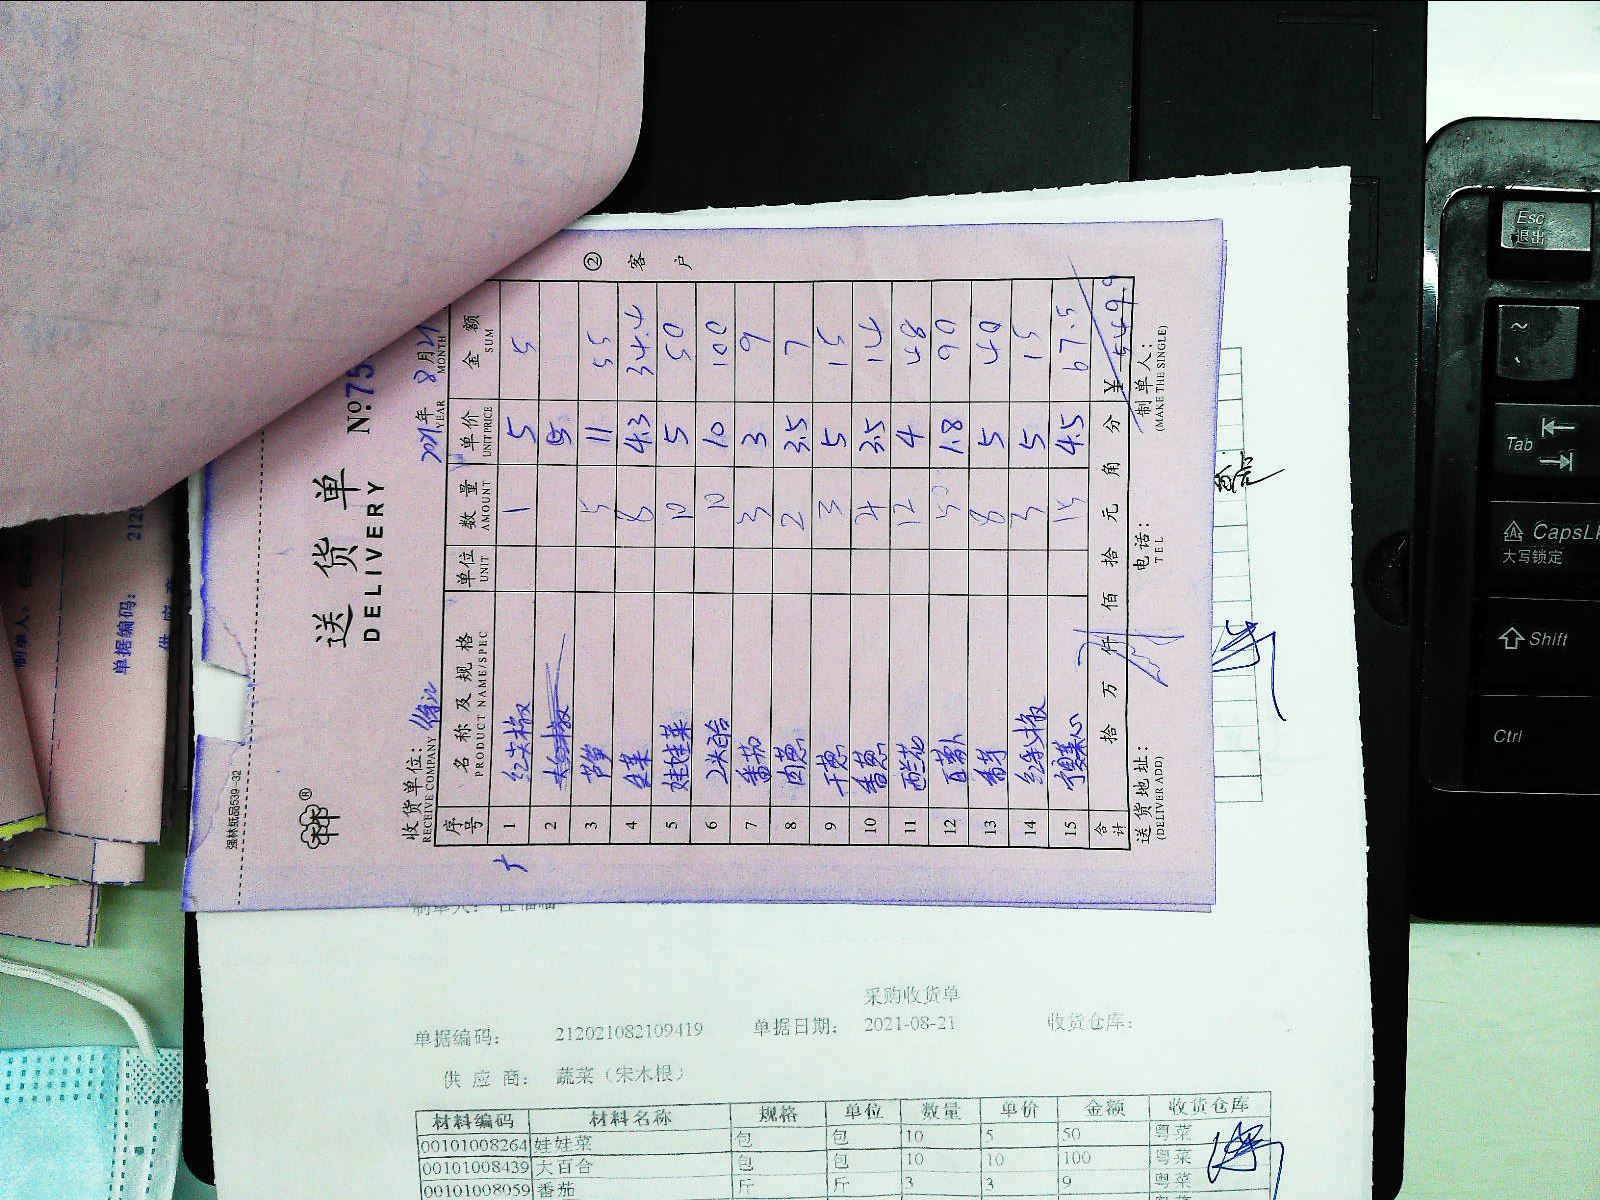 强林纸品539-32
送货单
DELIVERY
№:75
收货单位: 徐汇
RECEIVE COMPANY
2021年 8月21
YEAR MONTH
② 客户
序号 名称及规格 单位 数量 单价 金额
PRODUCT NAME/SPEC UNIT AMOUNT UNIT PRICE SUM
1 红尖椒 1 5 5
2
3 芦笋 5 11 55
4 生菜 8 4.3 34.4
5 娃娃菜 10 5 50
6 大百合 10 10 100
7 番茄 3 3 9
8 2 3.5 7
9 干葱 3 5 15
10 香葱 4 3.5 14
11 西兰花 12 4 48
12 白萝卜 50 1.8 90
13 香芹 8 5 40
14 3 5 15
15 15 4.5 67.5
合计 拾 万 仟 佰 拾 元 角 分 ¥ 549.9
送货地址: 电话: 制单人:
(DELIVER ADD) TEL (MAKE THE SINGLE)
采购收货单
单据编码: 212021082109419 单据日期: 2021-08-21 收货仓库:
供应商: 蔬菜（宋木根）
材料编码 材料名称 规格 单位 数量 单价 金额 收货仓库
00101008264 娃娃菜 包 包 10 5 50 粤菜
00101008439 大百合 包 包 10 10 100 粤菜
00101008059 番茄 斤 斤 3 3 9 粤菜
制单人:
单据编码: 212
供应商
Esc
退出
~
Tab
CapsL
大写锁定
Shift
Ctrl